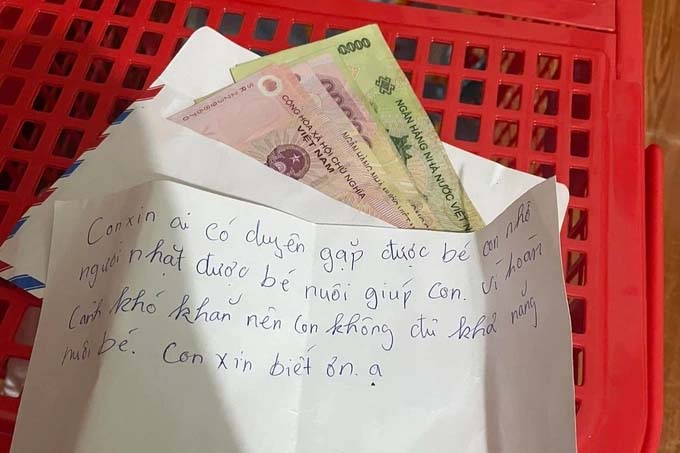 0.000
NGÂN HÀNG NHÀ NƯỚC VIỆT
CỘNG HÒA XÃ HỘI CHỦ NGHĨA
VIỆT NAM
Con xin ai có duyên gặp được bé con nhờ
người nhặt được bé nuôi giúp con. Vì hoàn
cảnh khó khăn nên con không đủ khả năng
nuôi bé. Con xin biết ơn. ạ